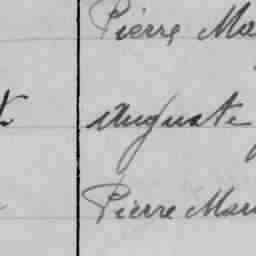 Pierre Ma
Auguste
Pierre Mari